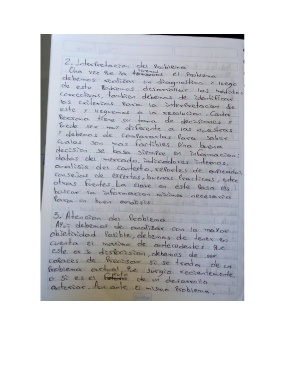 2. Interpretación del Problema
Una vez se ha el Problema
debemos realizar un diagnostico y luego
de esto Podemos desarrollar las medidas
correctivas, tambien debemos de identificar
los criterios Para la interpretación de
este y llegamos a la resolución. Cada
Persona tiene su toma de decisiones y
Puede ser muy diferente a las nuestras
y debemos de Para saber
cuales son mas factibles Una buena
decisión se basa siempre en información:
datos del mercado, indicadores internos,
analisis del contexto, reflector de experiencias
consejos de expertos, buenas Practicas, entre
otras fuentes. La clave en esta fase es
Publicar la información minima necesaria
Para un buen analisis.
3. Atención del Problema
Aqui debemos de analizar con la mayor
objetividad Posible, debemos de tener en
cuenta el maximo de antecedentes Que
este a disposición, debemos de ser
capaces de Precisar si se trata de un
Problema actual, Que surgió recientemente
o si es el de un desarrollo
anterior. Aun ante el mismo Problema.